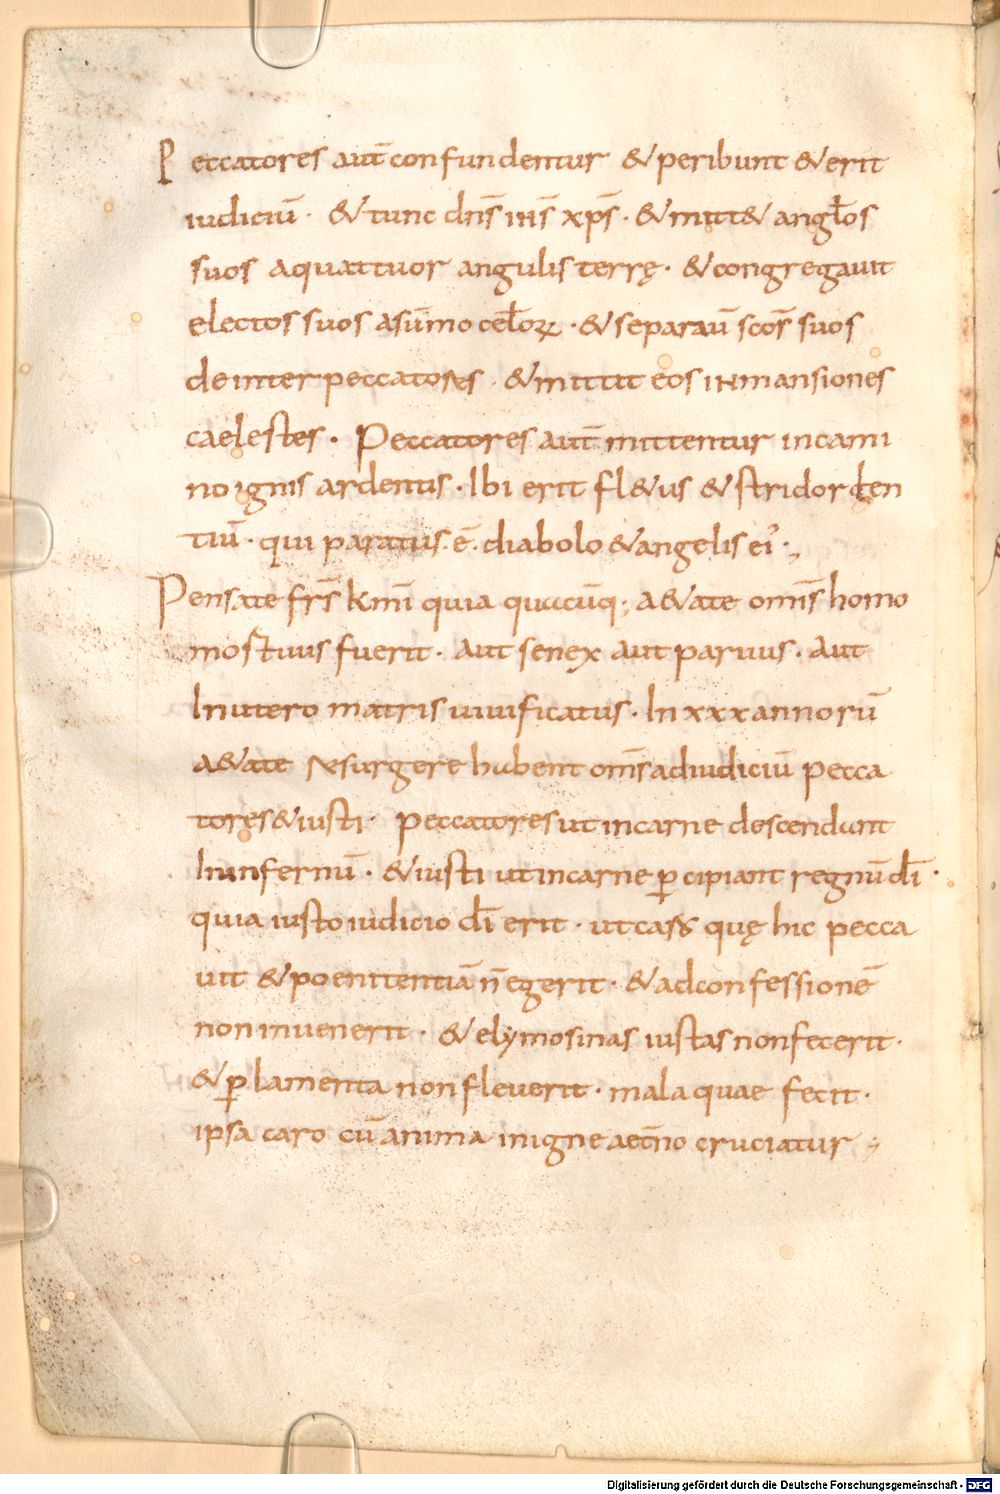 Peccatores aut̄ confundentur & peribunt & erit
iudiciū · & tunc dn̄s ihs̄ xp̄s · & mitt& angłos
suos a quattuor angulis terrę · & congregauit
electos suos a sūmo cełoꝝ · & separau̅ scōs suos
de inter peccatores · & mittit eos in mansiones
caelestes · Peccatores aut̄ mittentur in cami
no ignis ardentis · Ibi erit fl&us & stridor den
tiū · qui paratus · ē · diabolo & angelis ei᾽ ·,
Pensate fr̄s km̄i quia quacūq; a&ate omīs homo
mortuus fuerit · aut senex aut paruus · aut
In utero matris uiuificatus · In xxx annorū
a&ate resurgere habent omīs ad iudiciū pecca
tores & iusti · peccatores ut in carne descendant
In infernū · & iusti ut in carne ꝑcipiant regnū dī ·
quia iusto iudicio dī erit · ut quę hic pecca
uit & poenitentiā n̄ egerit · & ad confessionē
non inuenerit · & elymosinas iustas non fecerit ·
& ꝑ lamenta non fleuerit · mala quae fecit ·
ipsa caro cū anima in igne aet̄no cruciatur ·,
Digitalisierung gefördert durch die Deutsche Forschungsgemeinschaft - DFG